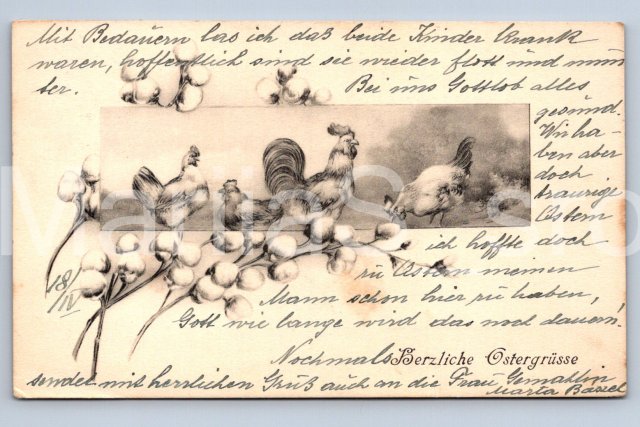 Mit Bedauern las ich daß beide Kinder krank
waren, hoffentlich sind sie wieder flott und mun
ter. Bei uns Gottlob alles
gesund.
Wir ha-
ben aber
doch
traurige
Ostern
ich hoffte doch
zu Ostern meinen
Mann schon hier zu haben,
Gott wie lange wird das noch dauern!
18/IV
Nochmals Herzliche Ostergrüsse
sendet mit herzlichen Gruß auch an die Frau Gemahlin
Maria